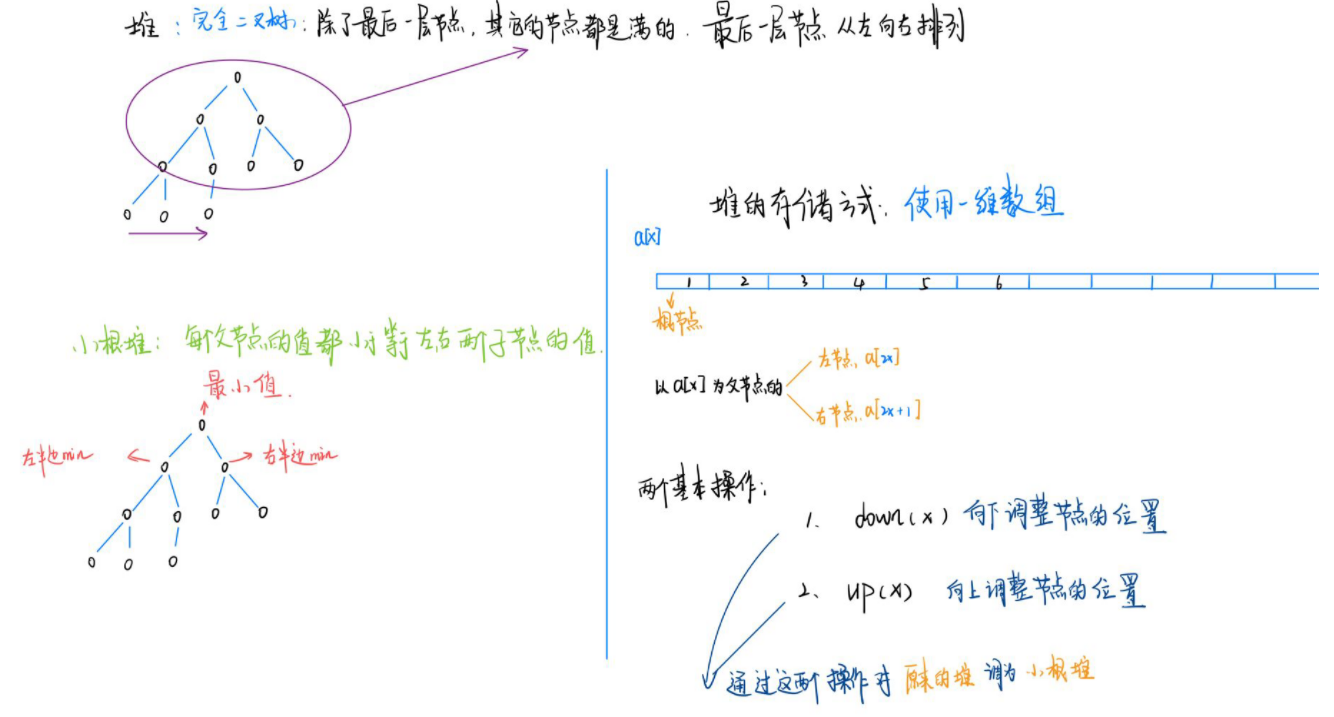 堆：完全二叉树：除了最后一层节点，其它的节点都是满的．最后一层节点 从左向右排列
小根堆：每个父节点的值都小于等于左右两个子节点的值．
最小值．
左半边min
右半边min
堆的存储方式：使用一维数组
a[x]
1 2 3 4 5 6
根节点
以a[x]为父节点的
左节点，a[2x]
右节点，a[2x+1]
两个基本操作：
1、 down(x) 向下调整节点的位置
2、 up(x) 向上调整节点的位置
通过这两个操作对 原来的堆 调为 小根堆